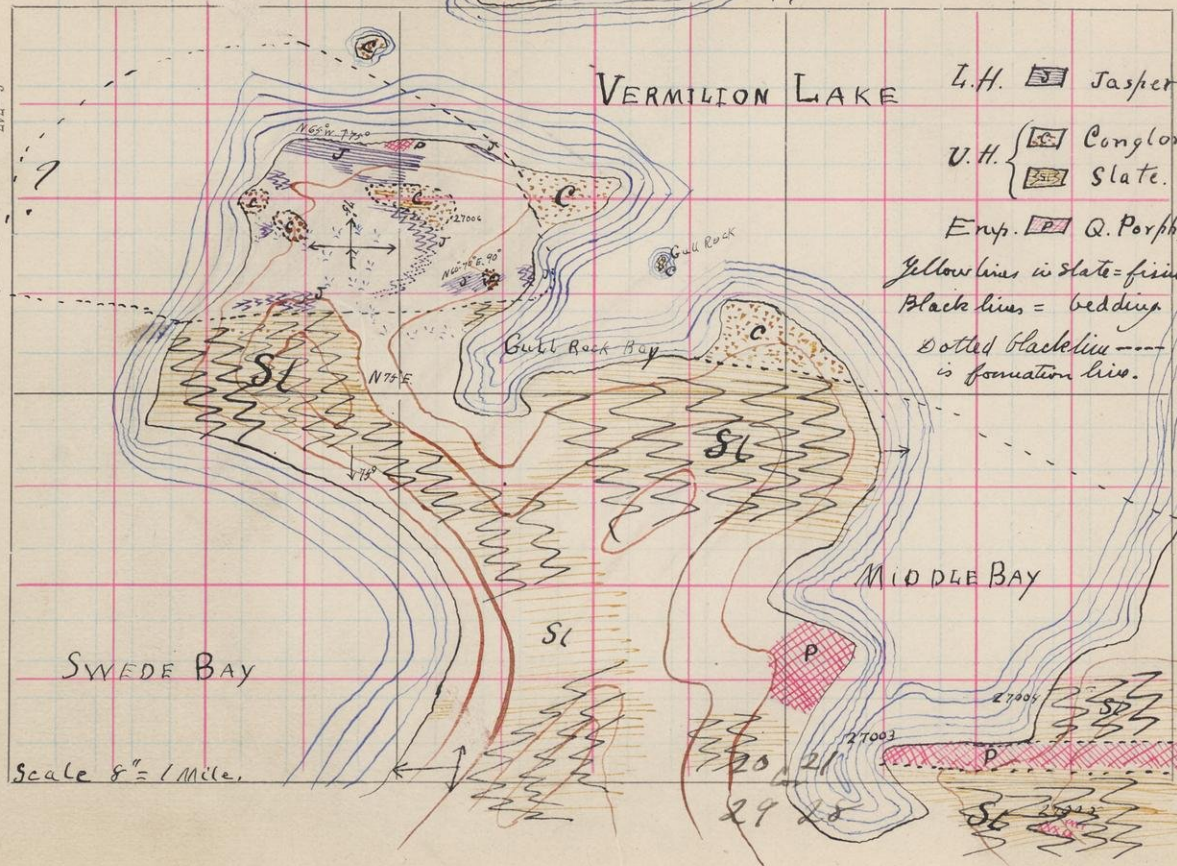 VERMILION LAKE
L.H. J Jasper
U.H. C Conglo
S Slate.
Erup. P Q. Porph
Yellow lines in slate = fissi
Black lines = bedding
Dotted black line ----
is formation line.
N 65° W. 75°
P
J
J
C
C
C
C
27006
J
Gull Rock
C
N 60-70 E. 90°
J
C
J
J
C
Gull Rock Bay
Sl
N 75 E.
Sl
75°
MIDDLE BAY
Sl
P
SWEDE BAY
27004
Sl
27003
P
Scale 8" = 1 Mile.
20 21
29 28
Sl